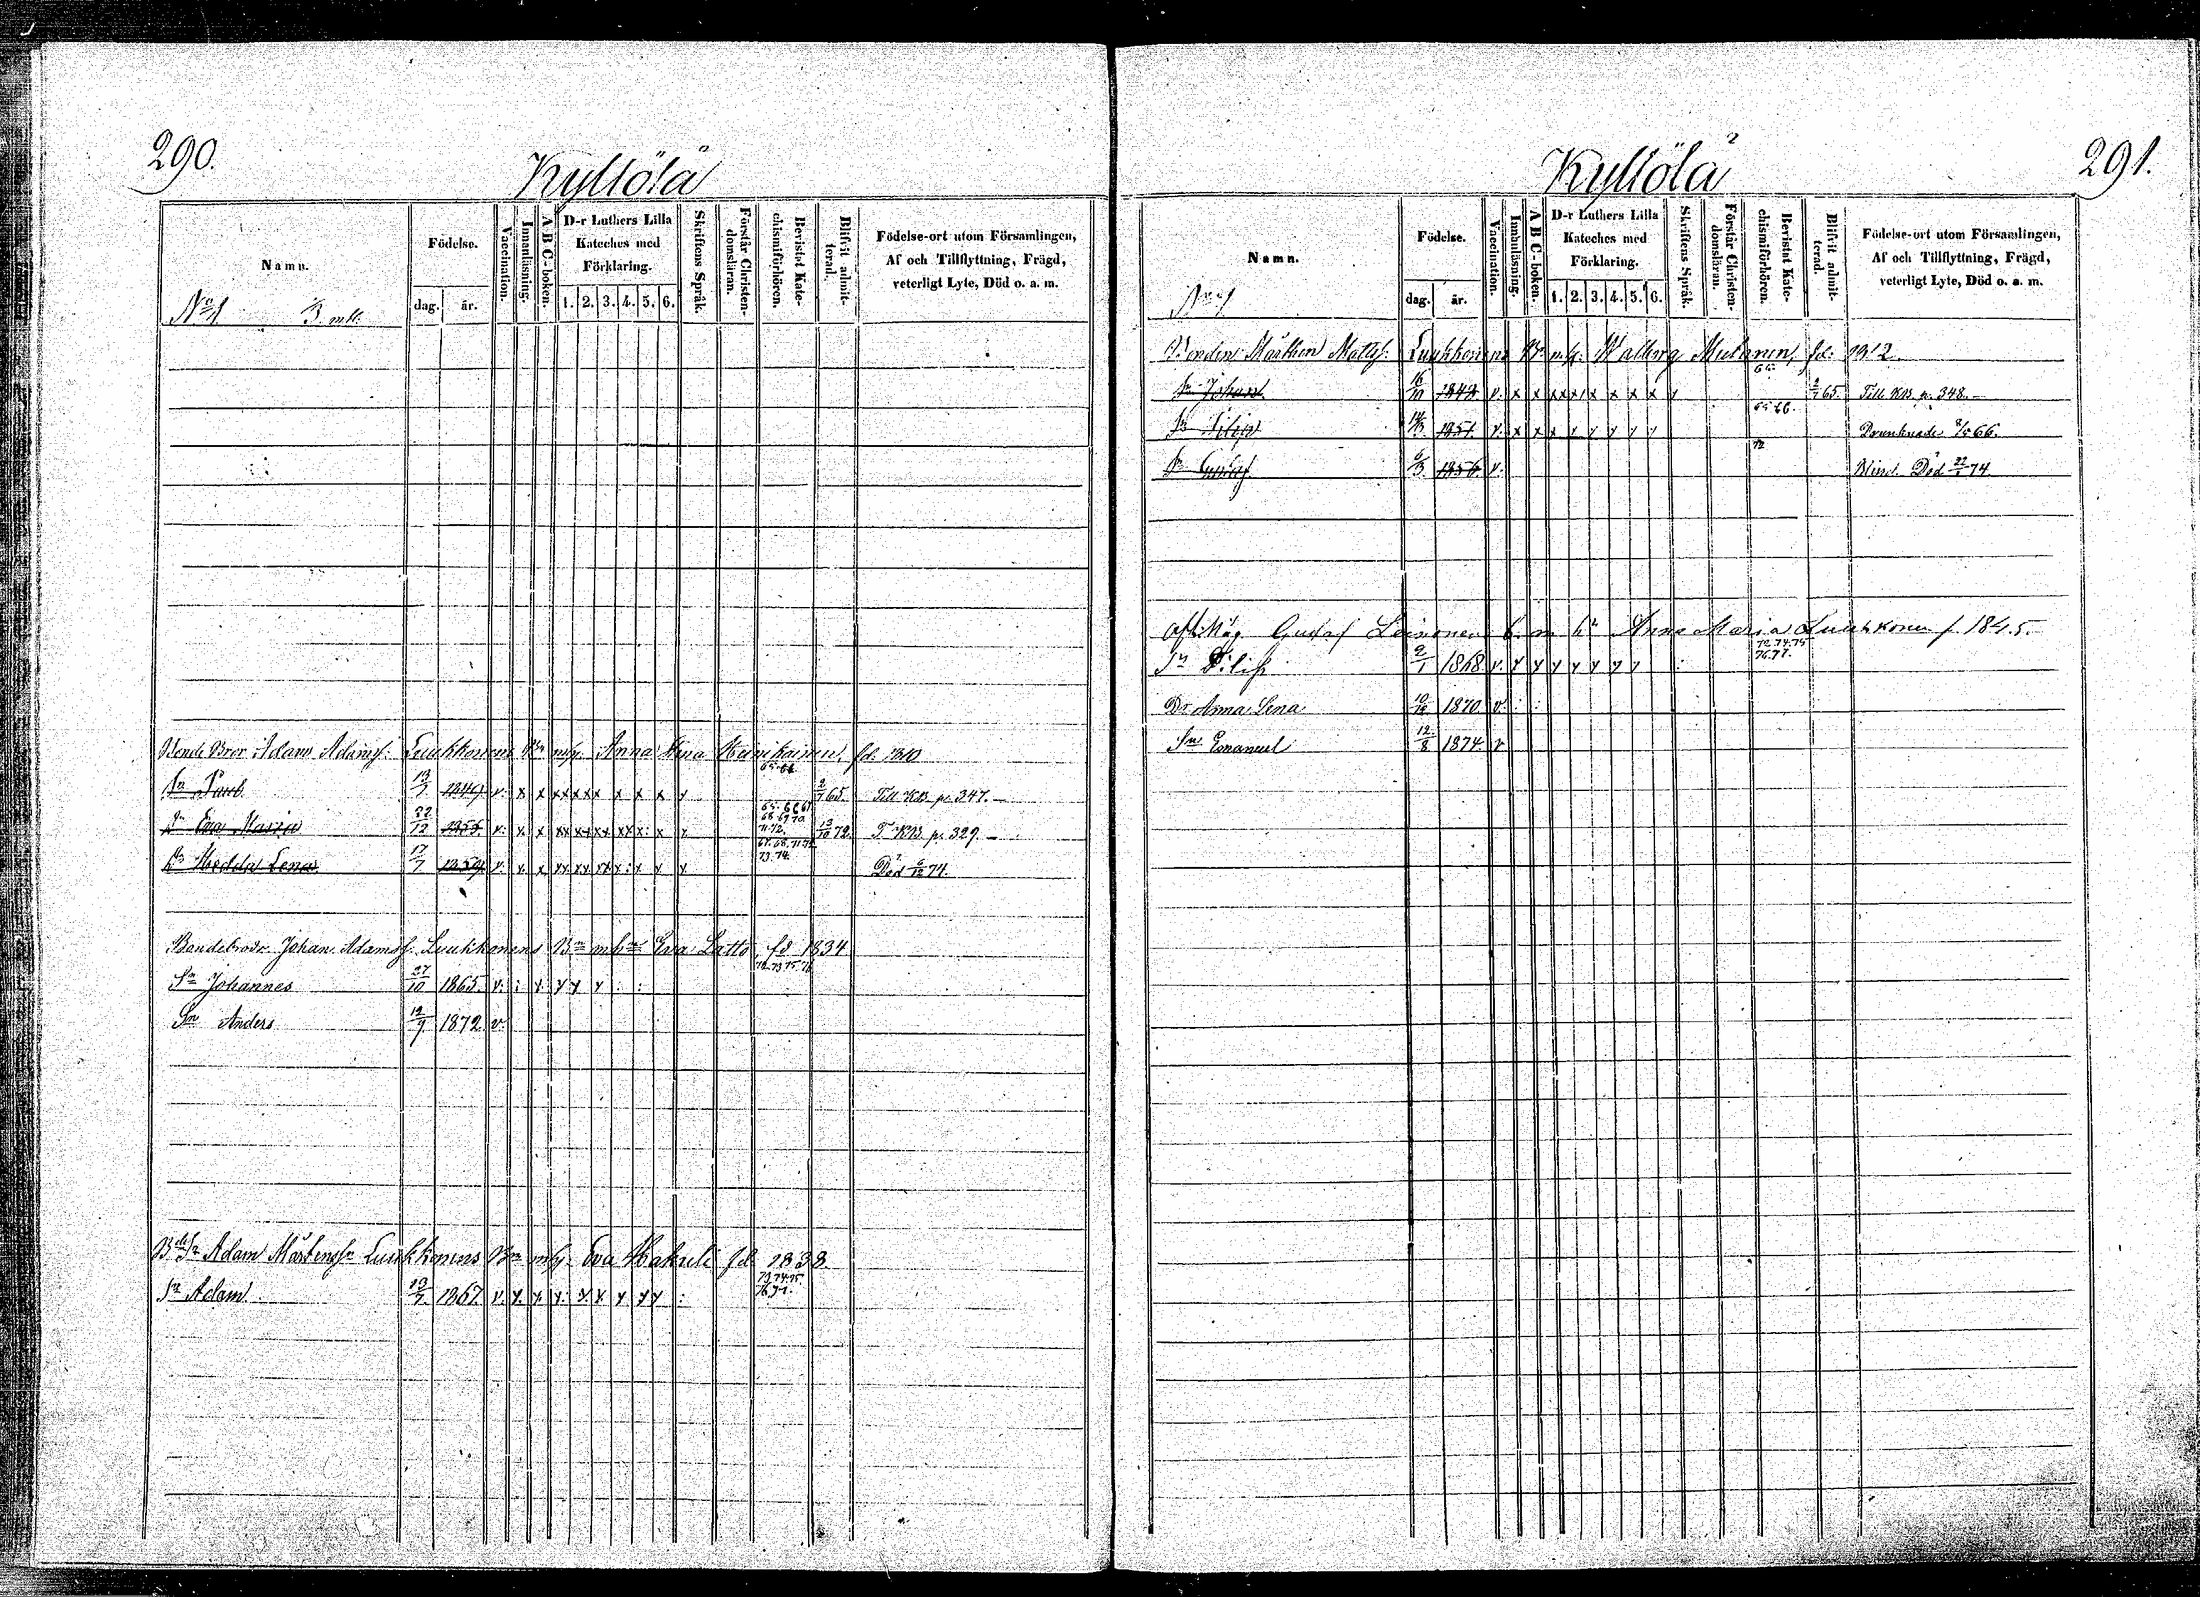 290.
Kyllölä
Namn. Födelse. dag. år. Vaccination. Innanläsning. A B C-boken. D-r Luthers Lilla Kateches med Förklaring. 1. 2. 3. 4. 5. 6. Skriftens Språk. Förstår Christendomsläran. Bevistat Katechismiförhören. Blifvit admitterad. Födelse-ort utom Församlingen, Af och Tillflyttning, Frägd, veterligt Lyte, Död o. a. m.
No 1.
Bonde Bror Adam Adamss: Luukkonens Bn m/h. Anna Stina fd.
Sn Paul 13/7 1849 v. x x x x x x x x x x 65.66 2/7 65. Till KB p. 347.
Dr Eva Maria 22/12 v. x x x x x x x x 65. 66 67 68 69 70 71.72. 13/10 72. T KB p. 329.
Dr Hedda Lena 17/7 1859 v. 67. 68. 71 72 73. 74. Död 6/12 74.
Bondebrodr. Johan Adamss. Luukkonens Bn m hn Eva Latto, fd 1834
Sn Johannes 27/10 1865. v. : v. y y y : : 72 73 75 76
Sn Anders 12/9 1872 v.
Bde Sn Adam Mårtenss. Luukkonens Bn m/h. Eva Hakuli fd. 1838.
Sn Adam 13/7. 1867. v. y. y y. y. y y y y : 73 74 75. 76.77.
291.
Kyllölä
Namn. Födelse. dag. år. Vaccination. Innanläsning. A B C-boken. D-r Luthers Lilla Kateches med Förklaring. 1. 2. 3. 4. 5. 6. Skriftens Språk. Förstår Christendomsläran. Bevistat Katechismiförhören. Blifvit admitterad. Födelse-ort utom Församlingen, Af och Tillflyttning, Frägd, veterligt Lyte, Död o. a. m.
No 1
Bonden Mårthen Matts: Luukkonens Bn m/h: Walborg fd: 1812
Sn Johan 16/10 1848 v. x x x x x x x x x x 65. 2/7 65. Till KB p. 348.
Sn Filip 14/3 1851. v. x x x y y y y y 65 66. Drunknade 66.
Sn Gustaf 6/3 1856. v. 72 Blind. Död 22/1 74.
Afl: Måg Gustaf Leinonen b. m hn Anna Maria Luukkonen f. 1845.
Sn Filip 2/1 1868 v. y y y y y y y : 72. 74. 75 76.77.
Dr Anna Lena 10/12 1870 v. : :
Sn Emanuel 12/8 1874 v